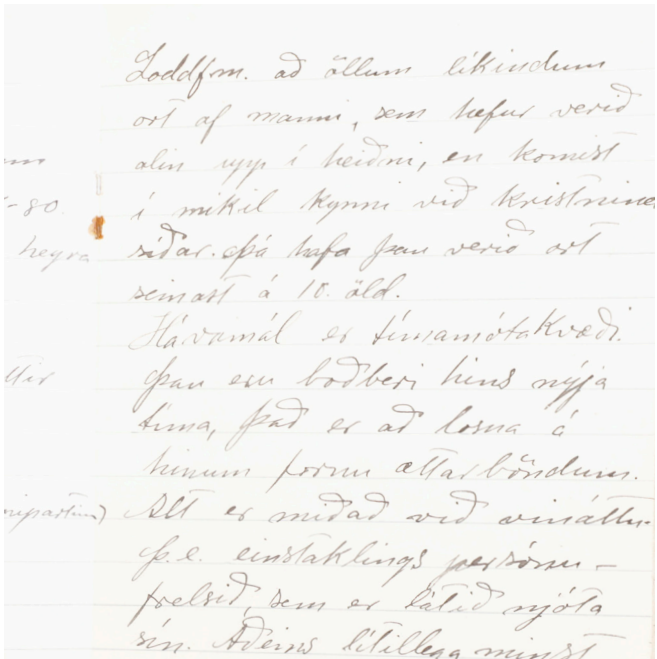 Loddfm. að öllum líkindum
ort af manni, sem hefur verið
alin upp í heiðni, en komist
í mikil kynni við kristnina
-80.
heyra
síðar. Þá hafa þau verið ort
seinast á 10. öld.
Hávamál er tímamótakvæði.
Þau eru boðberi hins nýja
tíma, það er að losna á
hinum fornu ættarböndum.
Alt er miðað við vináttu
þ.e. einstaklings persónu-
frelsið, sem er látið njóta
sín. Aðeins lítillega minst